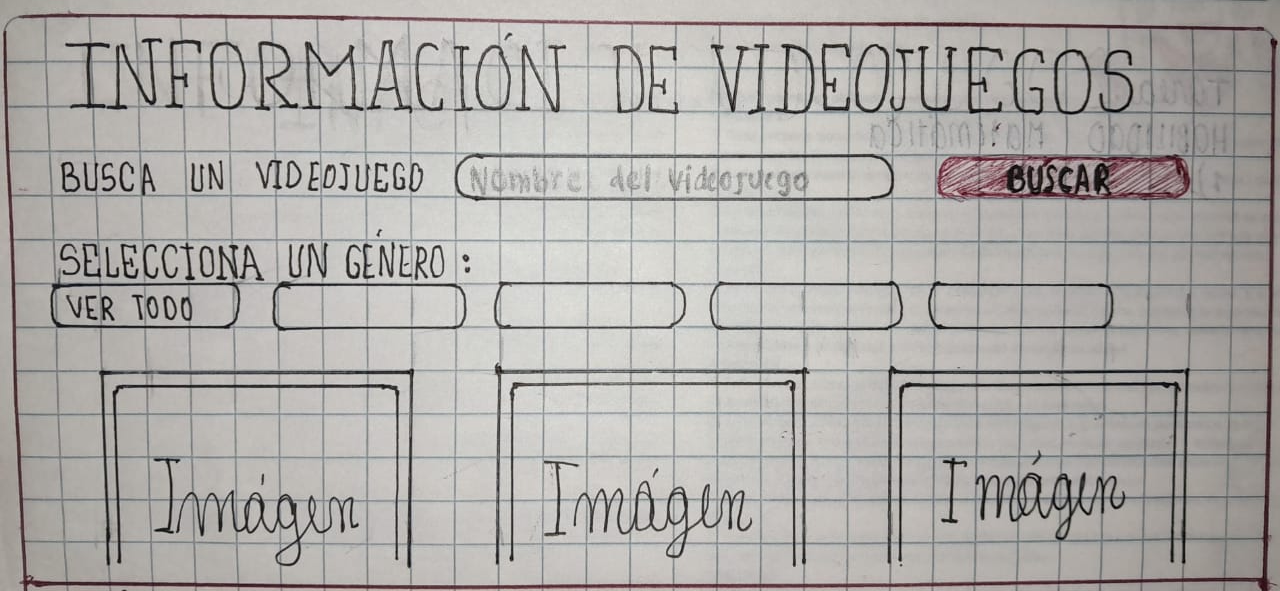 INFORMACIÓN DE VIDEOJUEGOS
BUSCA UN VIDEOJUEGO Nombre del Videojuego BUSCAR
SELECCIONA UN GÉNERO:
VER TODO
Imágen Imágen Imágen